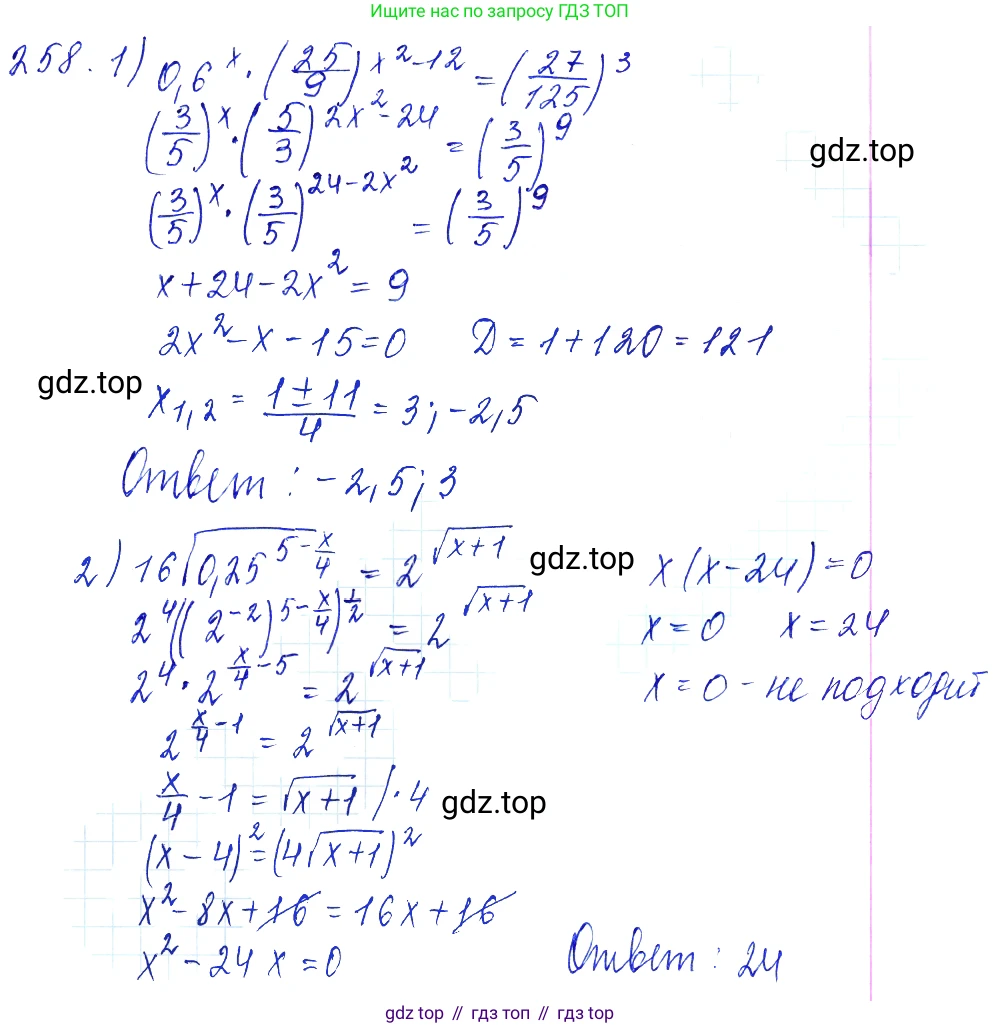 Ищите нас по запросу ГДЗ ТОП
258. 1) 0,6^x · (25/9)^(x²-12) = (27/125)^3
(3/5)^x · (5/3)^(2x²-24) = (3/5)^9
gdz.top
(3/5)^x · (3/5)^(24-2x²) = (3/5)^9
x+24-2x² = 9
2x²-x-15=0 D=1+120=121
gdz.top
x₁,₂ = (1±11)/4 = 3; -2,5
Ответ: -2,5; 3
2) 16√(0,25^(5-x/4)) = 2^√(x+1)
gdz.top
2^4((2^-2)^(5-x/4))^(1/2) = 2^√(x+1)
2^4 · 2^(x/4-5) = 2^√(x+1)
2^(x/4-1) = 2^√(x+1)
x/4 - 1 = √(x+1) /·4
gdz.top
(x-4)² = (4√(x+1))²
x²-8x+16 = 16x+16
x²-24x=0
x(x-24)=0
x=0 x=24
x=0 - не подходит
Ответ: 24
gdz.top // гдз топ // gdz top